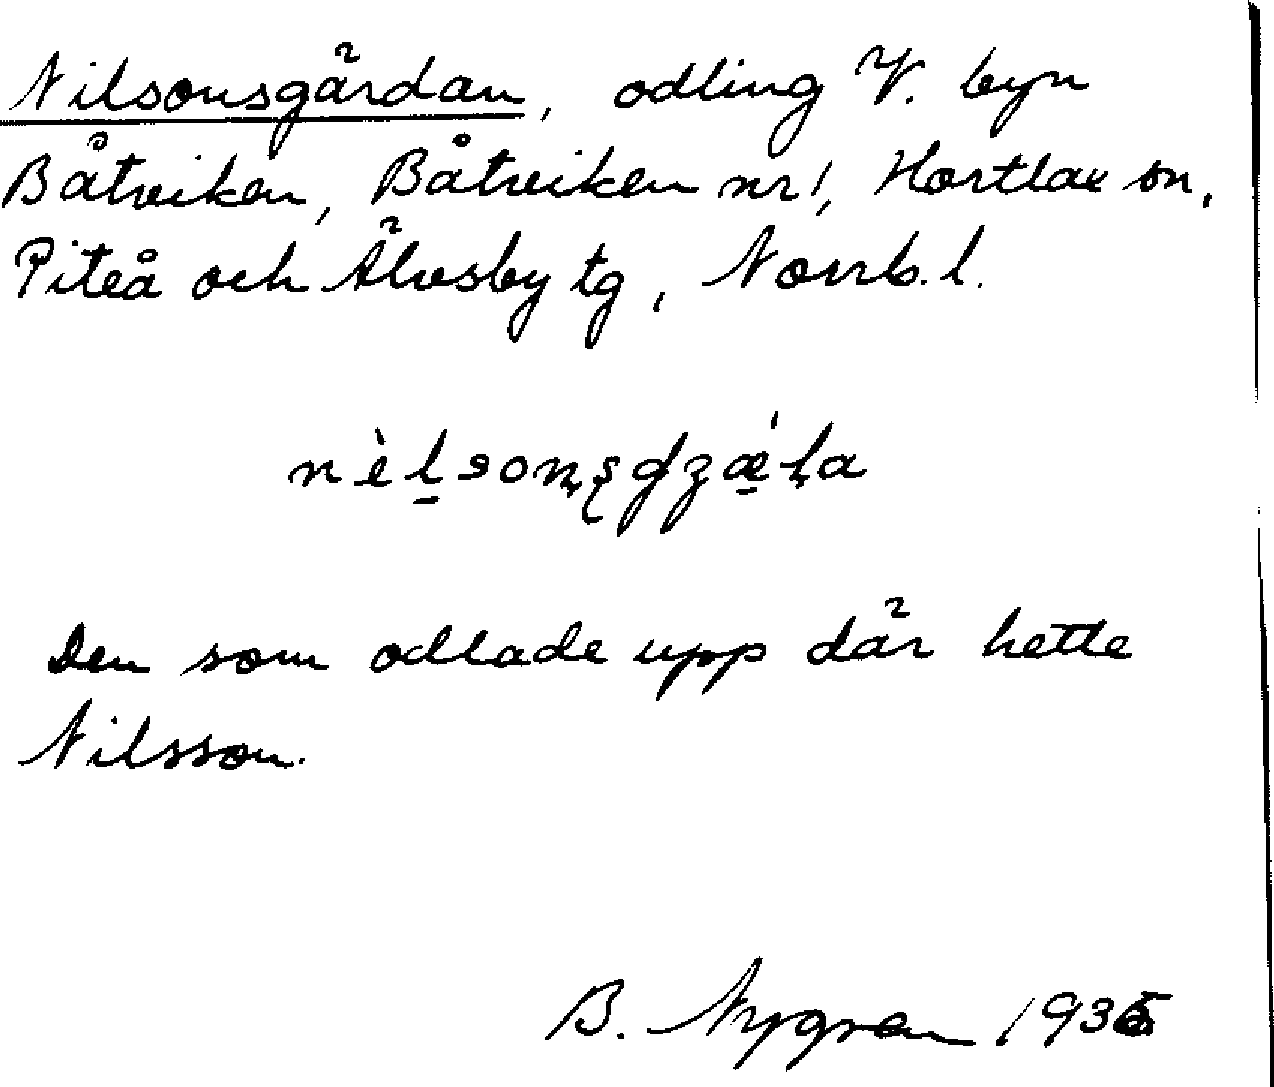 Nilsonsgärdan, odling V. byn
Båtviken, Båtviken nr 1, Hortlax sn,
Piteå och Älvsby tg, Norrb. l.
Den som odlade upp där hette
Nilsson.
B. Nygren 1935